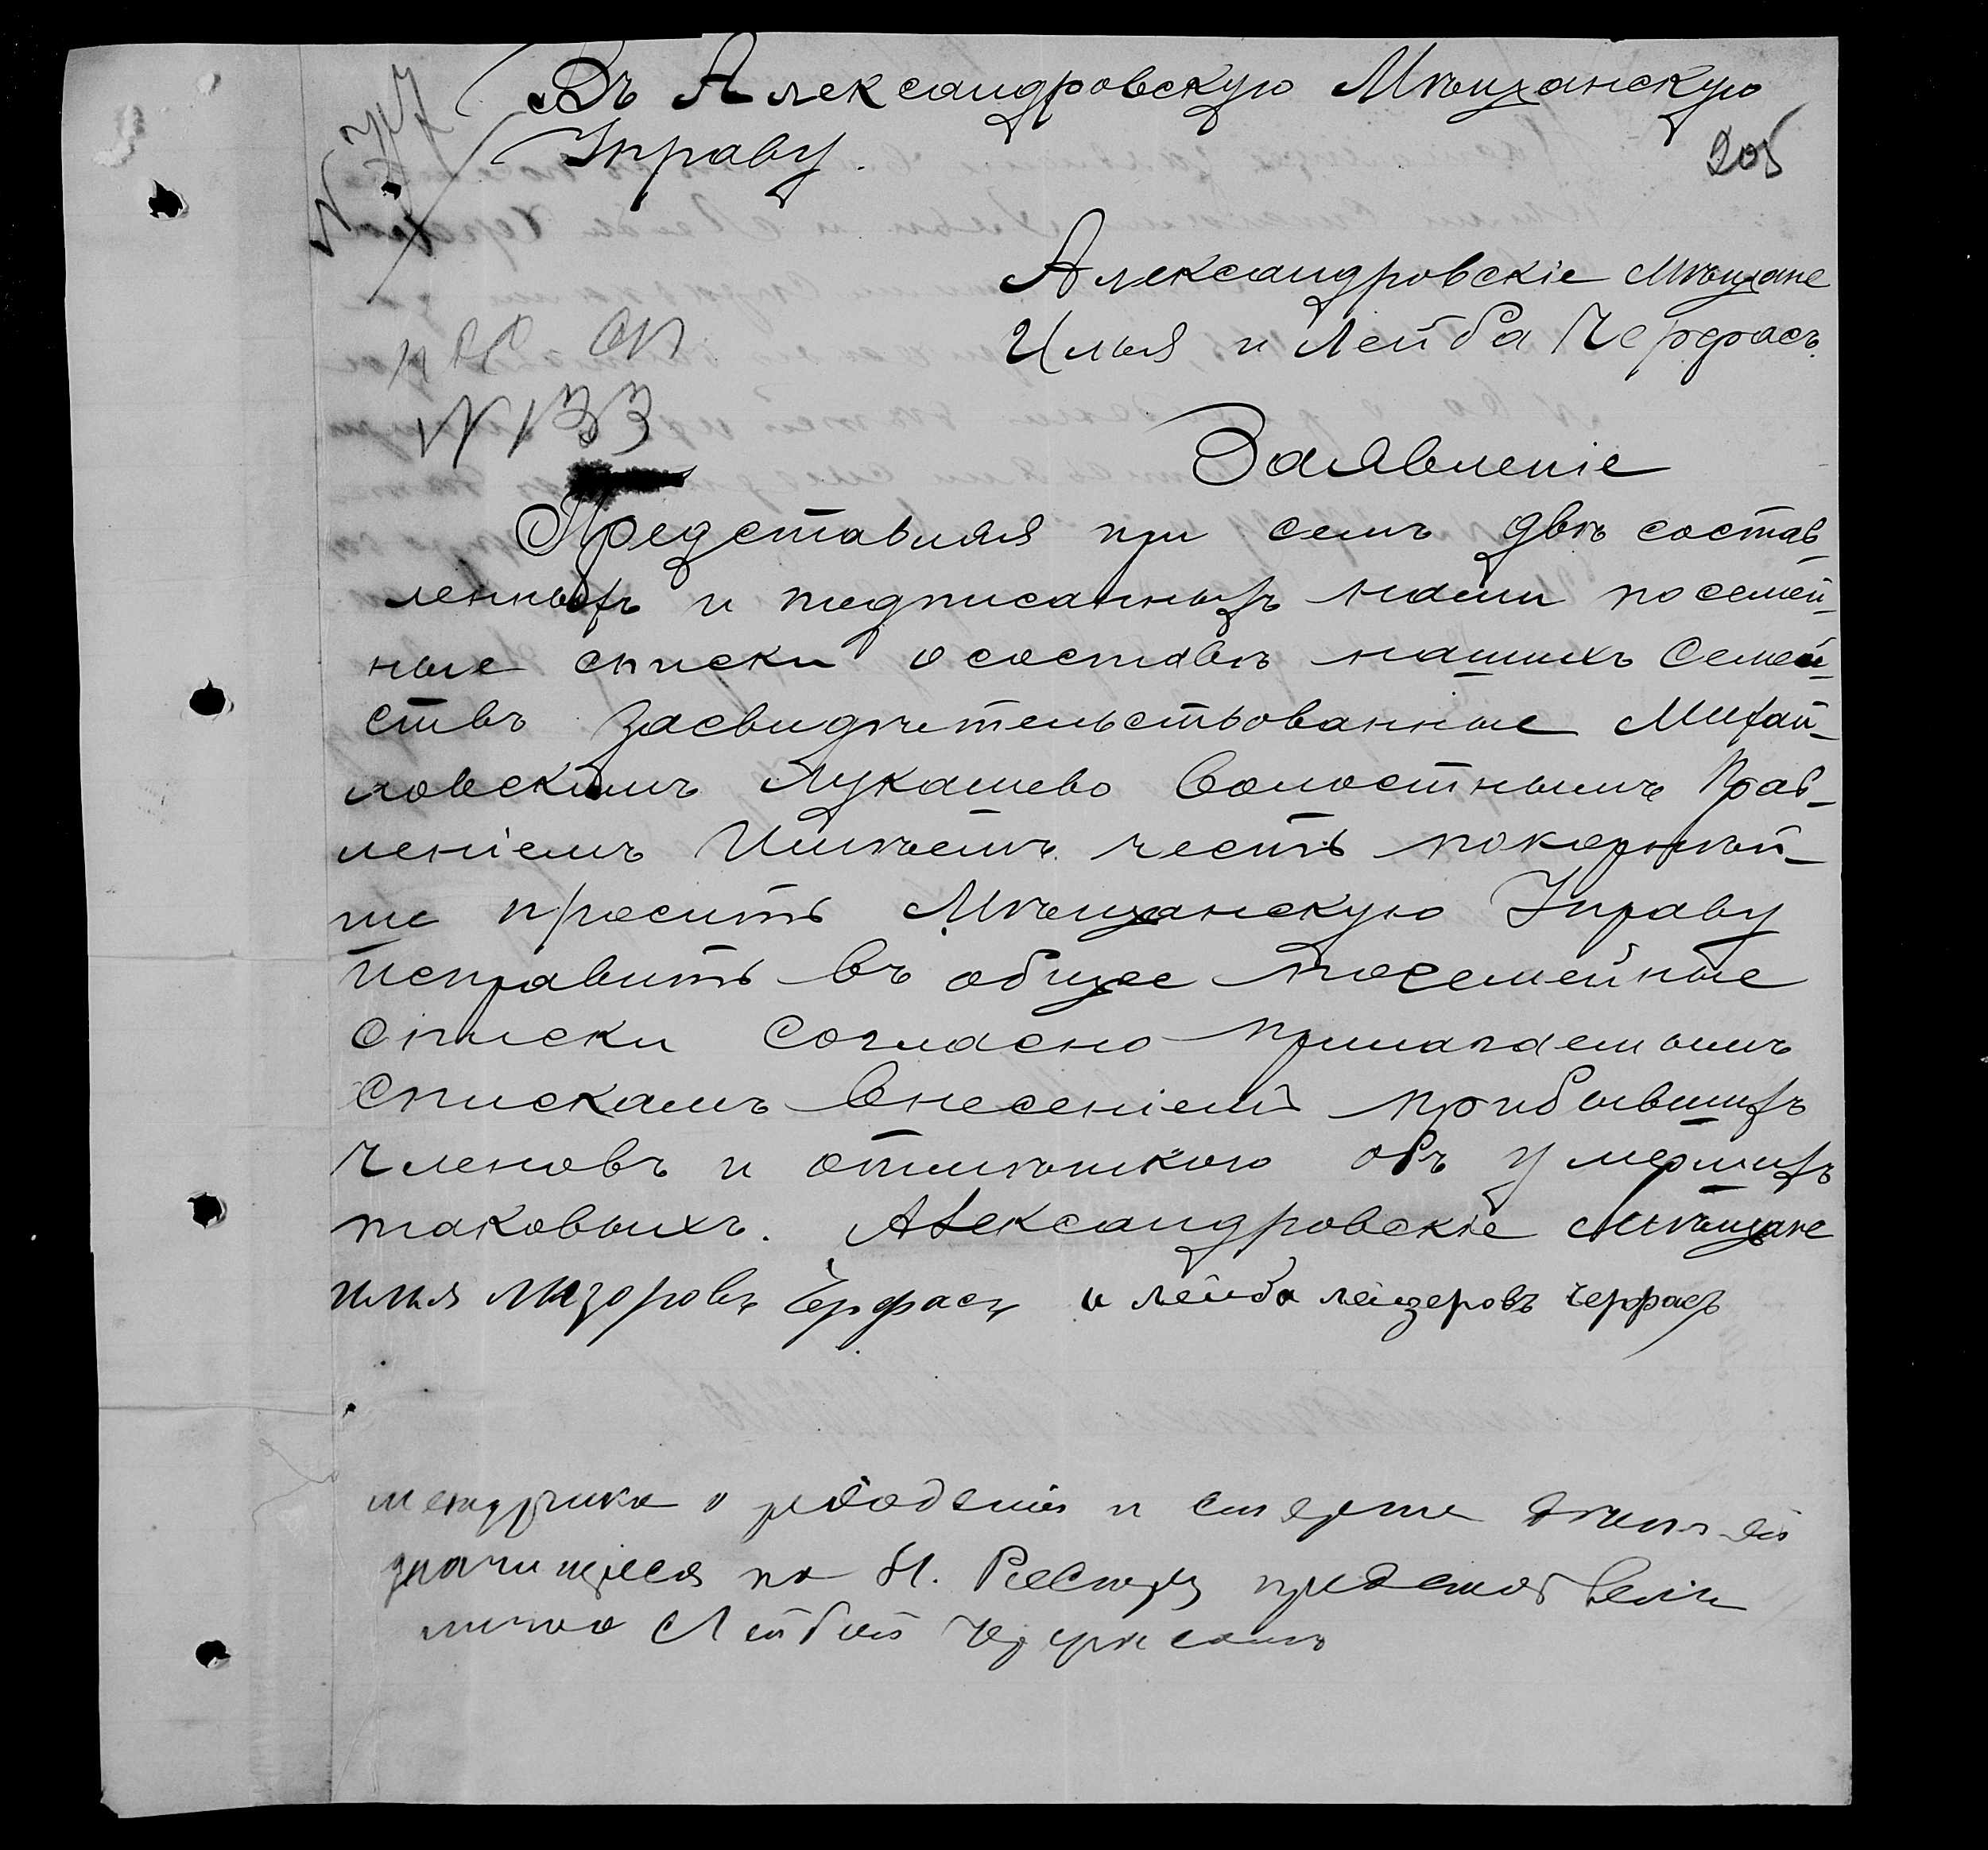 Въ Александровскую Мѣщанскую
Управу.
205
Александровскіе Мѣщане
Илья и Лейба Черфасъ.
N 133
Заявленіе
Представляя при семъ двѣ состав
ленныхъ и подписанныхъ нами посемей-
ные списки о составѣ нашихъ Семей-
ствъ засвидѣтельствованные Михай-
ловскимъ Лукашево Волостнымъ Прав-
леніемъ Имѣемъ честь покорнѣй-
ше просить Мѣщанскую Управу
исправить въ общее посемейные
Списки Согласно прилагаемымъ
Спискамъ Внесеніемъ прибывшихъ
Членовъ и отмѣткою объ умершихъ
таковыхъ. Александровскіе Мѣщане
илья лизоровъ Черфасъ и лейба лейзеровъ черфасъ
метрики о рождении и смерти
значущіеся по Н. Реестру
лично Лейбой